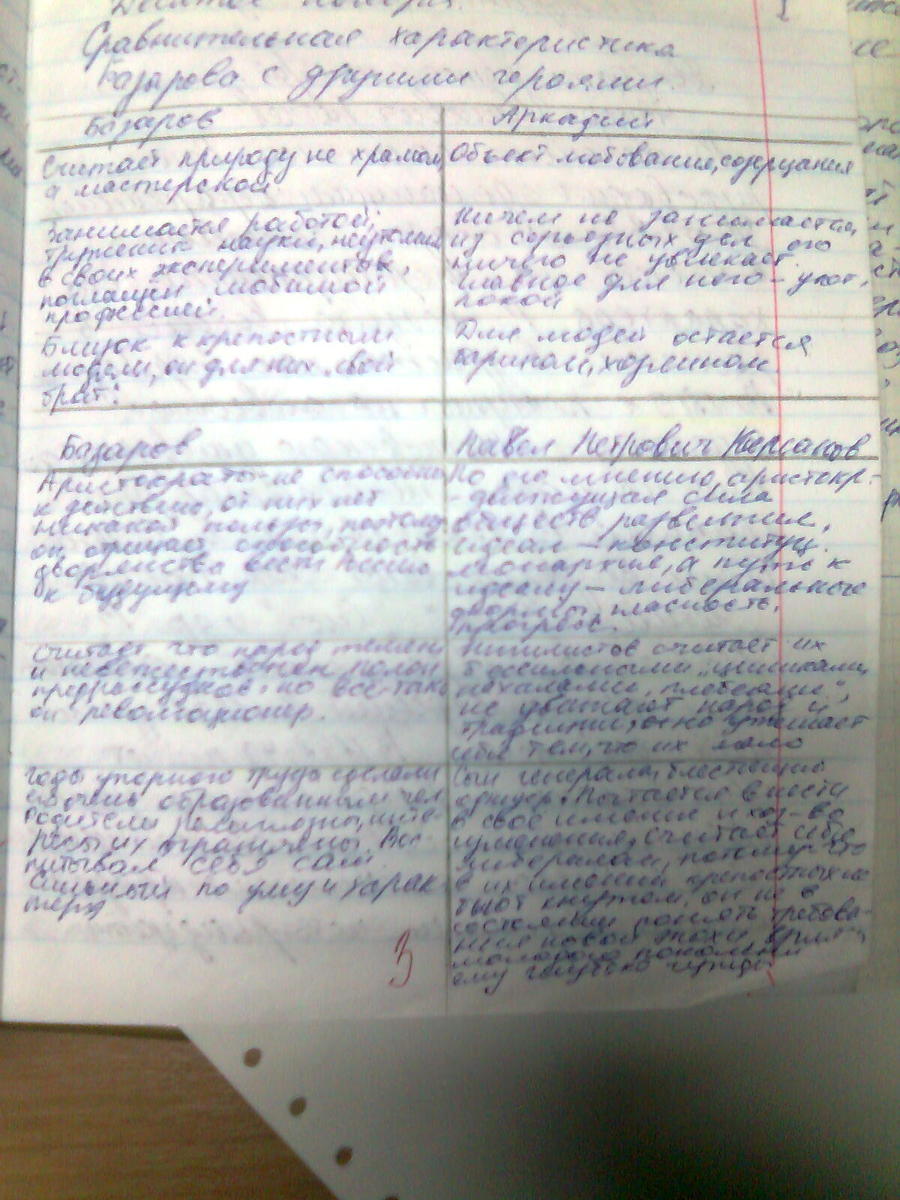 Десятое ноября.
Сравнительная характеристика
Базарова с другими героями.
Базаров
Считает природу не храмом,
а мастерской
Занимается работой;
труженик науки, неутомим
в своих экспериментов,
поглащен любимой
профессией.
Близок к крепостным
людям, он для них „свой
брат“.
Аркадий
Объект любования, созерцания
Ничем не занимается,
из серьезных дел его
ничего не увлекает.
главное для него - уют,
покой
Для людей остается
барином, хозяином
Базаров
Аристократы не способны
к действию, от них нет
никакой пользы, поэтому
он отрицает способность
дворянства вести Россию
к будущему
Считает, что народ темен
и невежественен, полон
предрассудков, но все-таки
он революционер.
годы упорного труда сделали
его очень образованным чел
родители религиозны, инте-
ресы их ограничены. Вос-
питывал себя сам.
Сильный по уму и харак
теру
Павел Петрович Кирсанов
По его мнению, аристокр.
- движущая сила
обществ. развития,
идеал — конституц.
монархия, а путь к
идеалу — либерального
гласность,
прогресс.
Нигилистов считает их
бессильными „циниками,
нахалами, плебеями“,
не уважают народ и
традиции, но утешает
себя тем, что их мало
Сын генерала, блестящего
Пытается внести
в свое имение и хоз-во
изменения, считает себя
либералом, потому что
в их имении крепостных не
бьют кнутом, он не в
состоянии понять требова-
ния новой эпохи,
молодого поколения
ему глубоко чужды
3